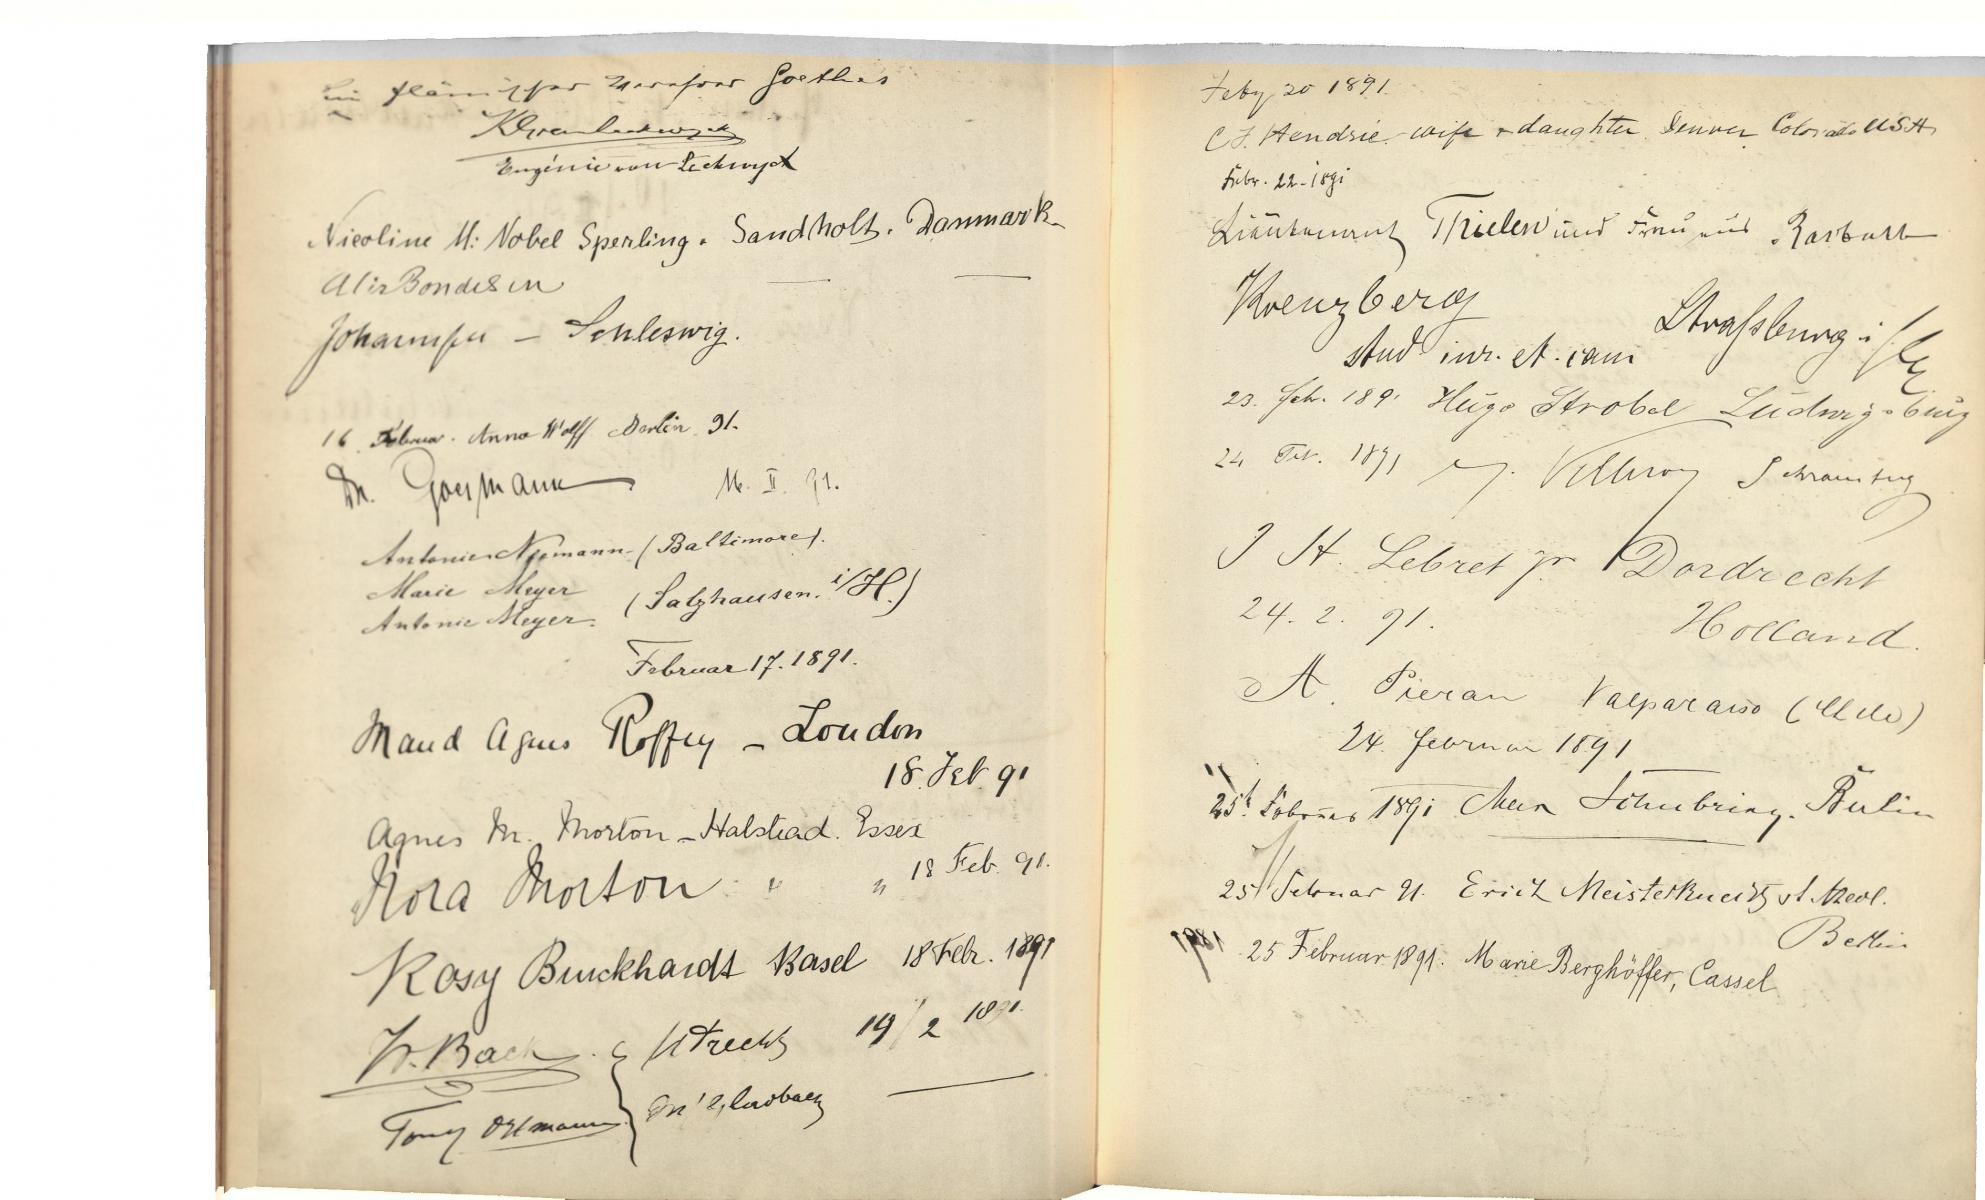 Ein flämischer Verehrer Goethes
Eugénie van Leckwyck
Nicoline M: Nobel Sperling. Sandholt. Danmark
Alir Bondesen
Johannsen – Schleswig.
16. Februar. Anna Wolff Berlin 91.
Dr. 16. II. 91.
Antonie Niemann (Baltimore).
Marie Meyer
Antonie Meyer. (Salzhausen. i/H.)
Februar 17. 1891.
Maud Agnes Roffey – London
18. Feb. 91
Agnes M. Morton – Halstead. Essex
Nora Morton " " 18 Feb. 91.
Rosy Burckhardt Basel 18 Febr. 1891
W. Bach. Utrecht 19/2 1891.
Tony Ottmann M'Gladbach
Feby 20 1891.
C F. Hendrie wife & daughter Denver Colorado USA
Febr. 22. 1891
Lieutenant Thielen und Frau aus Rastatt
Kreuzberg
Strassburg i/
stud iur. et. cam
23. Feb. 1891 Hugo Strobel Ludwigsburg
24 Feb. 1891
J H. Lebret jr. Dordrecht
24. 2. 91. Holland.
A. Pieran Valparaiso (Chile)
24. Februar 1891
25t. Februar 1891 Max Schubring. Berlin
25 Februar 91. Erich Meisterknecht st. theol.
Berlin
1981 25 Februar 1891. Marie Berghöffer, Cassel